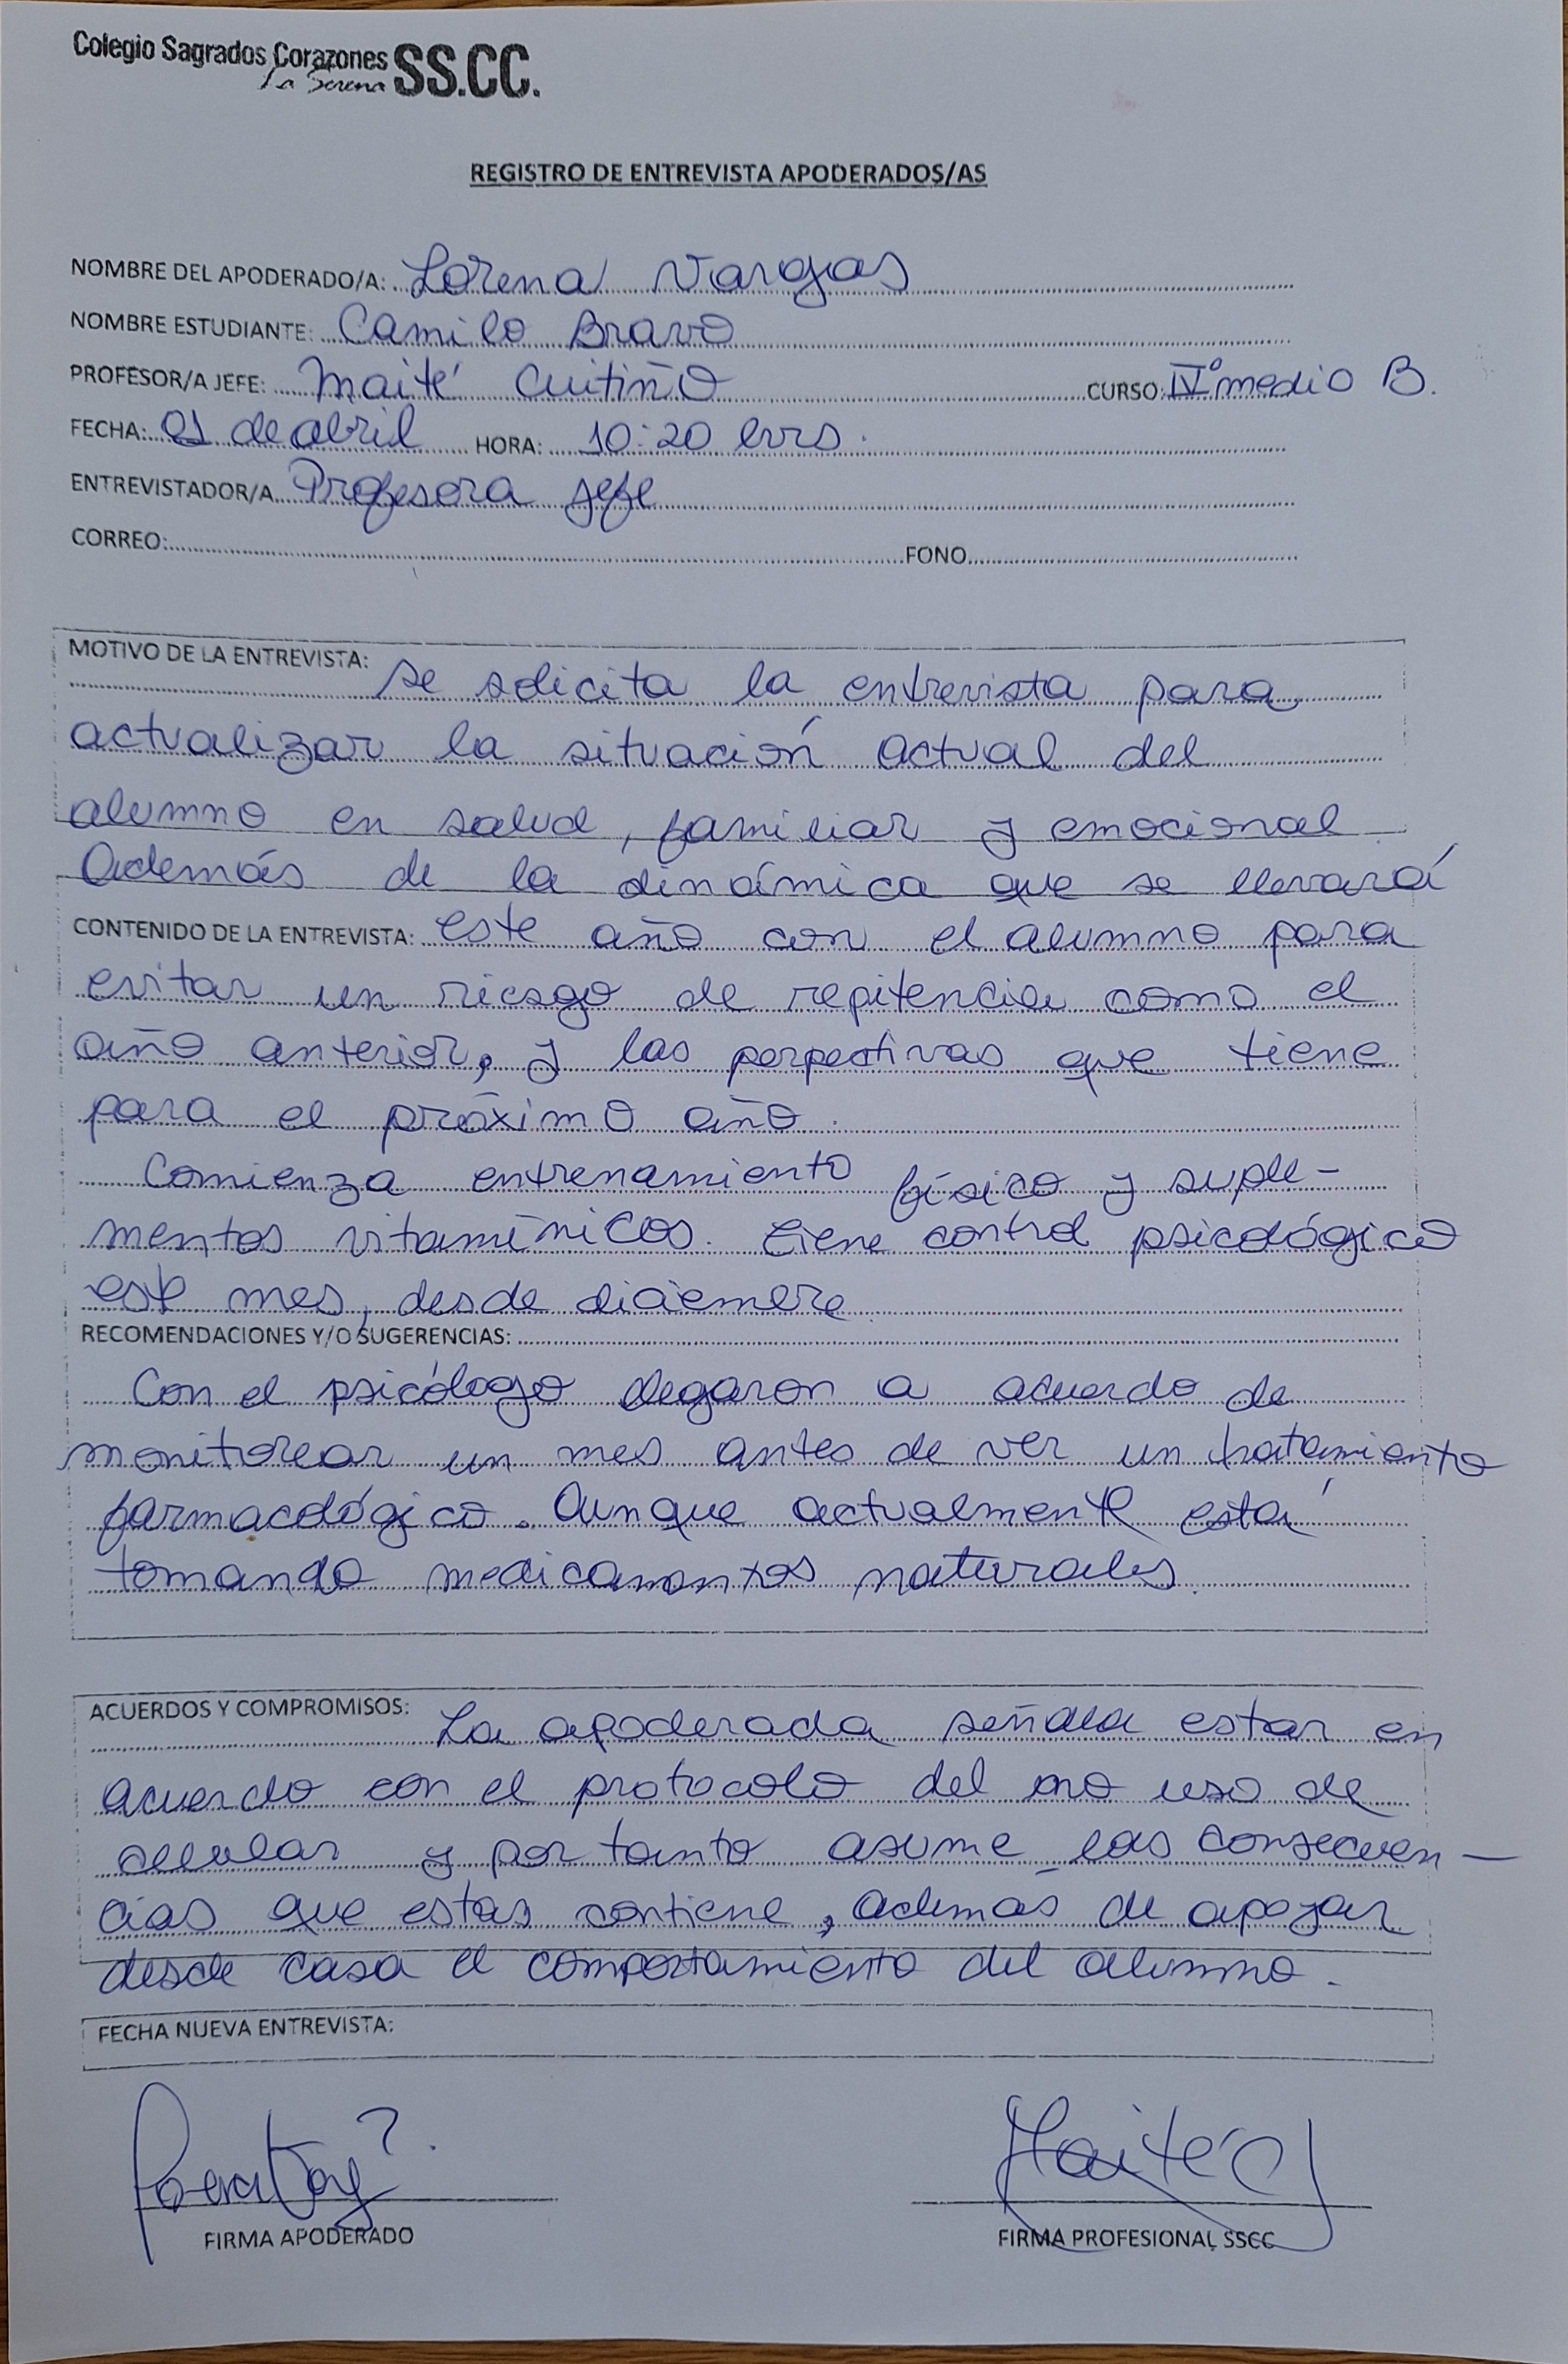 Colegio Sagrados Corazones SS.CC.
La Serena
REGISTRO DE ENTREVISTA APODERADOS/AS
NOMBRE DEL APODERADO/A: Lorena Vargas
NOMBRE ESTUDIANTE: Camilo Bravo
PROFESOR/A JEFE: Maité Cuitiño CURSO: IVº medio B.
FECHA: 01 de abril HORA: 10:20 hrs.
ENTREVISTADOR/A Profesora jefe
CORREO: FONO
MOTIVO DE LA ENTREVISTA: se solicita la entrevista para
actualizar la situación actual del
alumno en salud, familiar y emocional
Además de la dinámica que se llevará
CONTENIDO DE LA ENTREVISTA: este año con el alumno para
evitar un riesgo de repitencia como el
año anterior, y las perpectivas que tiene
para el próximo año.
Comienza entrenamiento físico y suple-
mentos vitamínicos. tiene control psicológico
este mes, desde diciembre.
RECOMENDACIONES Y/O SUGERENCIAS:
Con el psicólogo llegaron a acuerdo de
monitorear un mes antes de ver un tratamiento
farmacológico. Aunque actualmente está
tomando medicamentos naturales.
ACUERDOS Y COMPROMISOS: La apoderada señala estar en
acuerdo con el protocolo del no uso de
celular y por tanto asume las consecuen-
cias que estas contiene, además de apoyar
desde casa el comportamiento del alumno.
FECHA NUEVA ENTREVISTA:
Maité C
FIRMA APODERADO FIRMA PROFESIONAL SSCC